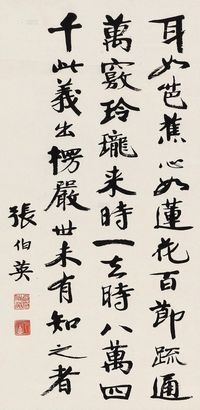 耳如芭蕉心如蓮花百節疏通
萬竅玲瓏来時一去時八萬四
千此義出楞嚴世未有知之者
張伯英